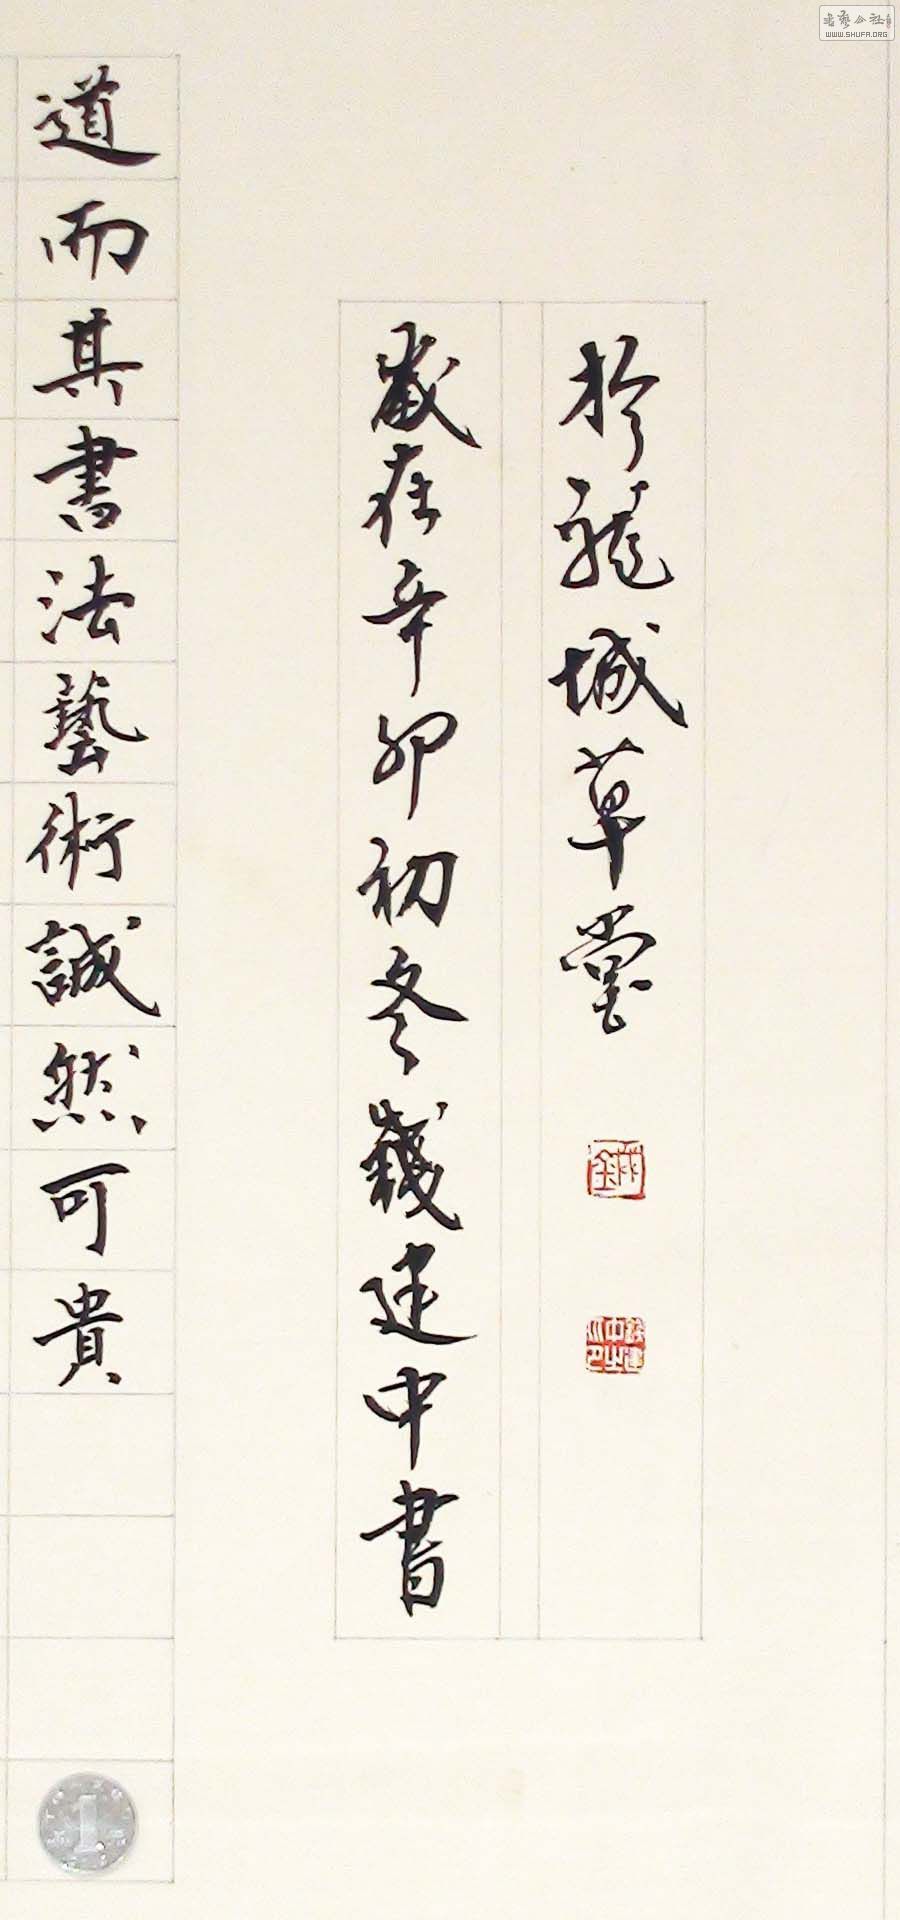 道而其書法藝術誠然可貴
歲在辛卯初冬錢建中書
於龍城草堂
書藝公社
WWW.SHUFA.ORG
1